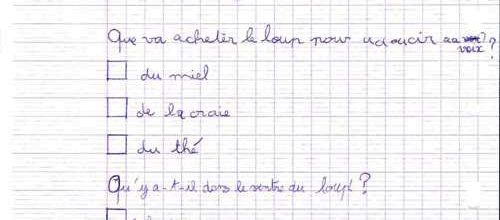 Que va acheter le loup pour adoucir sa voix ?
du miel
de la craie
du thé
Qu'y a-t-il dans le ventre du loup ?